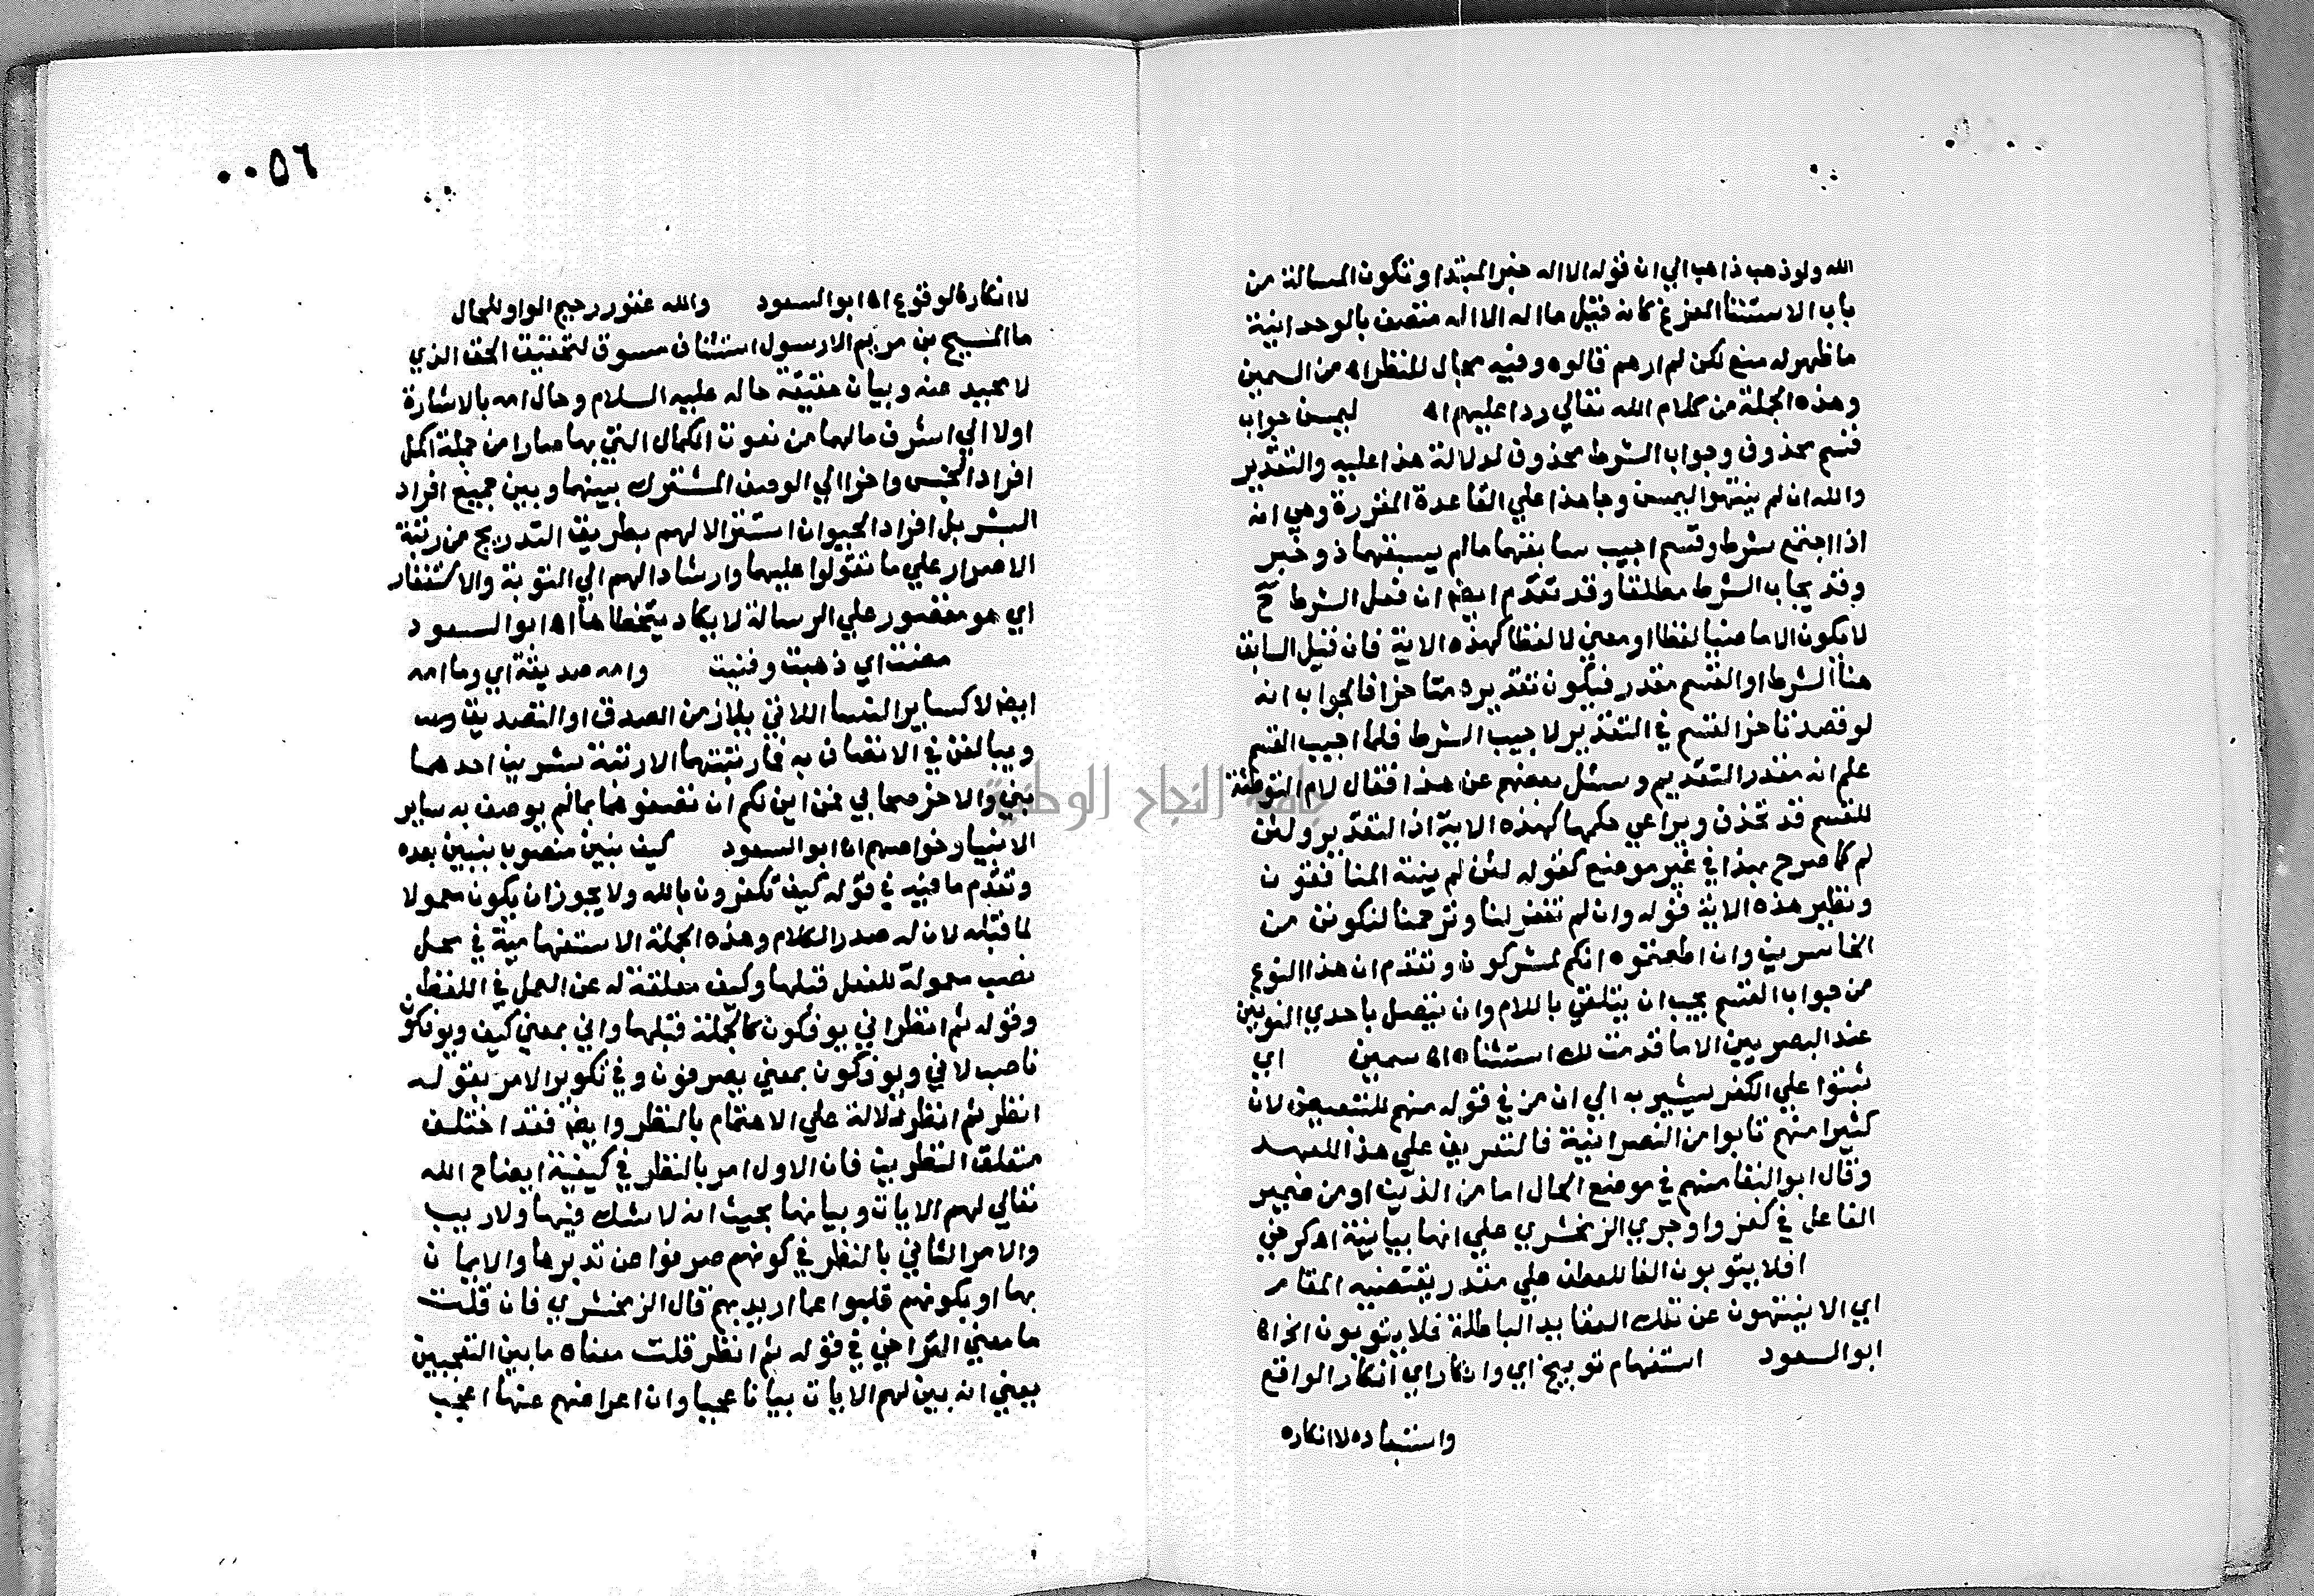 الله ولو ذهب ذاهب الي ان قوله الا اله خبر المبتدا وتكون المسالة من
باب الاستثنا المفرغ كانه قيل ما اله الا اله متصف بالوحدانية
ما ظهر له منع لكن لم ارهم قالوه وفيه مجال للنظر اه من السمين
وهذه الجملة من كلام الله تعالي ردا عليهم اه ليمسن جواب
قسم محذوف وجواب الشرط محذوف لدلالة هذا عليه والتقدير
والله ان لم ينتهوا ليمسن وجا هذا علي القاعدة المقررة وهي انه
اذا اجتمع شرط وقسم اجيب سابقهما ما لم يسبقهما ذو خبر
وقد يجاب الشرط مطلقا وقد تقدم ايضا ان فعل الشرط ح
لا يكون الا ماضيا لفظا او معني لا لفظا كهذه الاية فان قيل السابق
هنا الشرط او القسم مقدر فيكون تقديره متاخرا فالجواب انه
لو قصد تاخر القسم في التقدير لاجيب الشرط فلما اجيب القسم
علم انه مقدر التقديم وسئل بعضهم عن هذا فقال لام التوطئة
للقسم قد تحذف ويراعي حكمها كهذه الاية اذ التقدير ولئن
لم كما صرح بهذا في غير موضع كقوله لئن لم ينته المنافقون
ونظير هذه الاية قوله وان لم تغفر لنا وترحمنا لنكونن من
الخاسرين وان اطعتموه انكم لمشركون وتقدم ان هذا النوع
من جواب القسم يجب ان يتلقي باللام وان يتصل باحدي النونين
عند البصريين الا ما قدمت لك استثناه اه سمين اي
ثبتوا علي الكفر يشير به الي ان من في قوله منهم للتبعيض لان
كثيرا منهم تابوا من النصرانية فالتعريف علي هذا للعهد
وقال ابو البقا منهم في موضع الحال اما من الذين او من ضمير
الفاعل في كفروا وجري الزمخشري علي انها بيانية اه كرخي
افلا يتوبون الفا للعطف علي مقدر يقتضيه المقام
اي الا ينتهون عن تلك العقايد الباطلة فلا يتوبون الخ اه
ابو السعود استفهام توبيخ اي وانكار اي انكار الواقع
واستبعاده لا انكاره
٠٠٥٦
لا انكارة لوقوع اه ابو السعود والله غفور رحيم الواو للحال
ما المسيح بن مريم الا رسول استئناف مسوق لتحقيق الحق الذي
لا محيد عنه وبيان حقيقة حاله عليه السلام وحال امه بالاشارة
اولا الي اشرف ما لهما من نعوت الكمال التي بها صارا من جملة اكمل
افراد الجنس واخرا الي الوصف المشترك بينهما وبين جميع افراد
البشر بل افراد الحيوان استنزالا لهم بطريق التدريج من رتبة
الاصرار علي ما تقولوا عليهما وارشادا لهم الي التوبة والاستغفار
اي هو مقصور علي الرسالة لا يكاد يتخطاها اه ابو السعود
مضت اي ذهبت وفنيت وامه صديقة اي وما امه
ايضا لا كساير النسا اللاتي يلازمن الصدق او التصديق
ويبالغن في الاتصاف به فما رتبتهما الا رتبة بشرين احدهما
نبي والاخر صحابي فمن اين لكم ان تصفوهما بما لم يوصف به ساير
الانبيا وخواصهم اه ابو السعود كيف نبين منصوب بنبين بعده
وتقدم ما فيه في قوله كيف تكفرون بالله ولا يجوز ان يكون معمولا
لما قبله لان له صدر الكلام وهذه الجملة الاستفهامية في محل
نصب معمولة للفعل قبلها وكيف معلقة له عن العمل في اللفظ
وقوله ثم انظر اني يوفكون كالجملة قبلها واني بمعني كيف ويوفكون
ناصب لاني ويوفكون بمعني يصرفون وفي تكوير الامر بقوله
انظر ثم انظر دلالة علي الاهتمام بالنظر وايضا فقد اختلف
متعلق النظرين فان الاول امر بالنظر في كيفية ايضاح الله
تعالي لهم الايات وبيانها بحيث انه لا شك فيها ولا ريب
والامر الثاني بالنظر في كونهم صرفوا عن تدبرها والايمان
بها او بكونهم قلبوا عما اريد بهم قال الزمخشري فان قلت
ما معني التراخي في قوله ثم انظر قلت معناه ما بين التعجبين
يعني انه بين لهم الايات بيانا عجيبا وان اعراضهم عنها اعجب
جامعة النجاح الوطنية